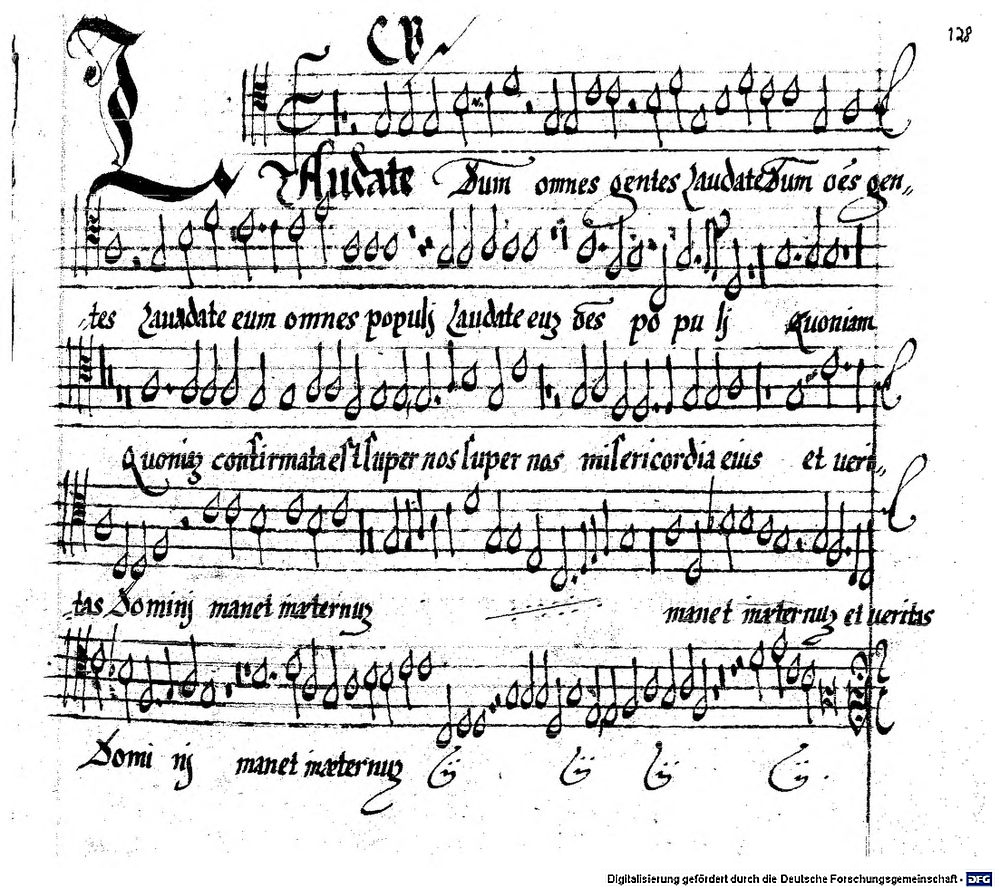 128
CV
LAudate Dum omnes gentes Laudate Dum oēs gen„
„tes Lauadate eum omnes populj Laudate euʒ oēs po pu lj Quoniam
Quoniaʒ confirmata est super nos super nos misericordia eius et veri„
tas Dominj manet inæternuʒ manet inæternuʒ et ueritas
Domi nj manet inæternuʒ ij ij ij ij.
Digitalisierung gefördert durch die Deutsche Forschungsgemeinschaft - DFG